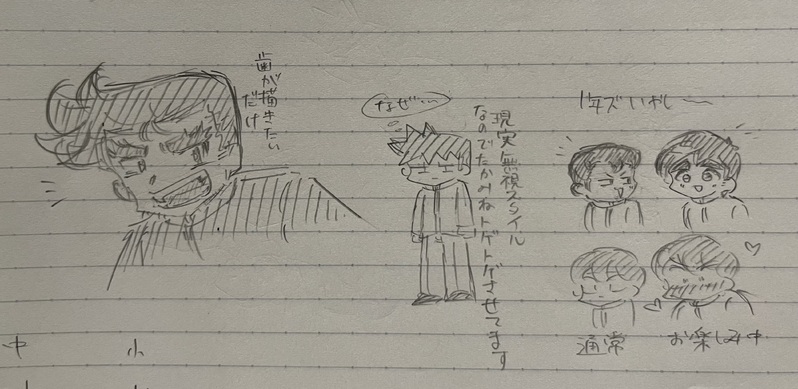 歯が描きたい
だけ
なぜ…
現実無視スタイル
なのでたかみねトゲトゲさせてます
1年ズいやし〜
通常
お楽しみ中
中
小